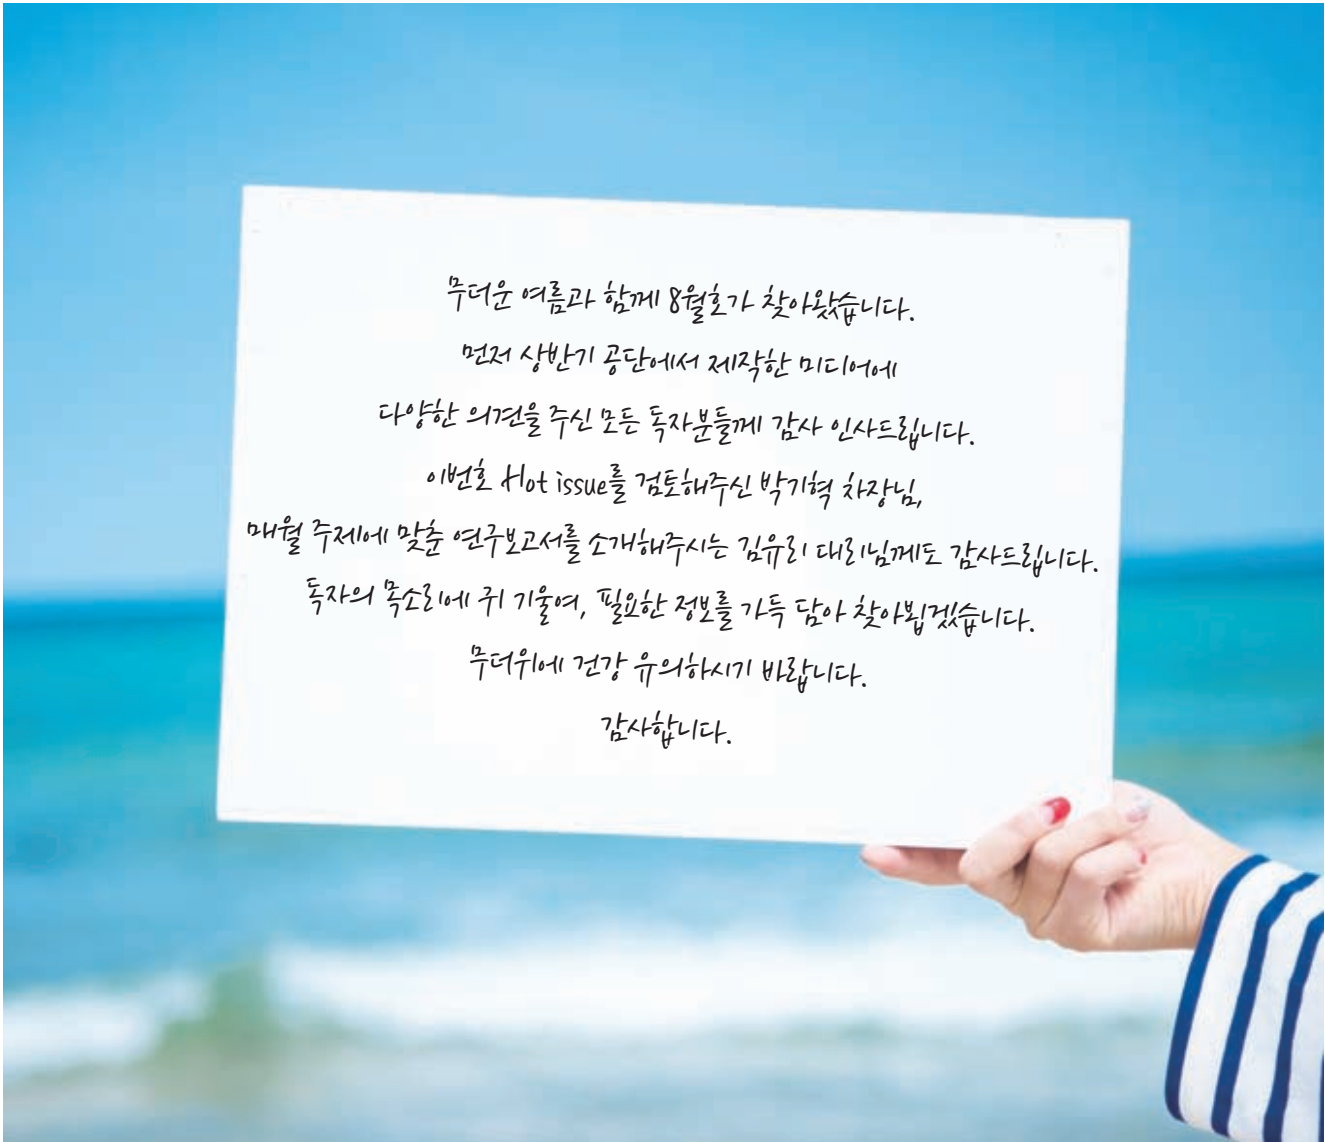 무더운 여름과 함께 8월호가 찾아왔습니다.
먼저 상반기 공단에서 제작한 미디어에
다양한 의견을 주신 모든 독자분들께 감사 인사드립니다.
이번호 Hot issue를 검토해주신 박기혁 차장님,
매월 주제에 맞춘 연구보고서를 소개해주시는 김유리 대리님께도 감사드립니다.
독자의 목소리에 귀 기울여, 필요한 정보를 가득 담아 찾아뵙겠습니다.
무더위에 건강 유의하시기 바랍니다.
감사합니다.